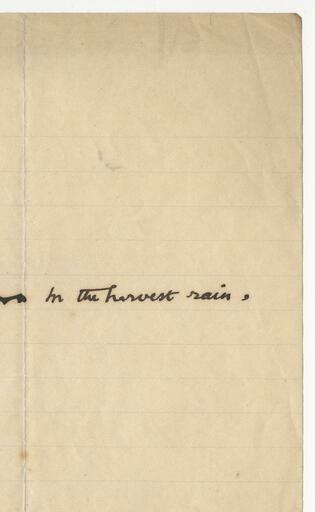 In the harvest rain.